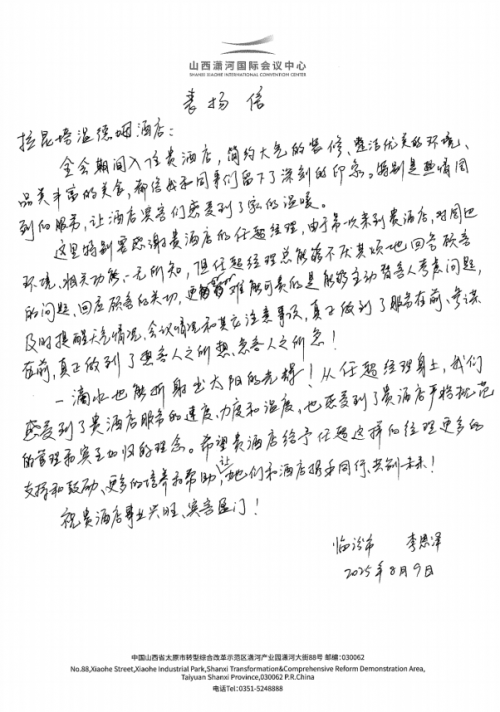 山西潇河国际会议中心
SHANXI XIAOHE INTERNATIONAL CONVENTION CENTER
表扬信
拉昆塔温德姆酒店:
全会期间入住贵酒店,简约大气的装修、整洁优美的环境、
品类丰富的美食,都给我和同事们留下了深刻的印象。特别是热情周
到的服务,让酒店宾客们感受到了家的温暖。
这里特别要感谢贵酒店的任超经理,由于第一次来到贵酒店,对周边
环境、相关功能一无所知,但任超经理总能够不厌其烦地回答顾客
的问题、回应顾客的关切,更难能可贵的是能够主动替客人考虑问题,
及时提醒天气情况、会议情况和其它注意事项,真正做到了服务在前、参谋
在前,真正做到了想客人之所想、急客人之所急!
一滴水也能折射出太阳的光辉!从任超经理身上,我们
感受到了贵酒店服务的速度、力度和温度,也感受到了贵酒店严格规范
的管理和宾至如归的理念。希望贵酒店给予任超这样的经理更多的
支持和鼓励、更多的培养和帮助,让他们和酒店携手同行、共创未来!
祝贵酒店事业兴旺、宾客盈门!
临汾市 李思泽
2025年8月9日
中国山西省太原市转型综合改革示范区潇河产业园潇河大街88号 邮编:030062
No.88,Xiaohe Street,Xiaohe Industrial Park,Shanxi Transformation&Comprehensive Reform Demonstration Area,
Taiyuan Shanxi Province,030062 P.R.China
电话Tel:0351-5248888